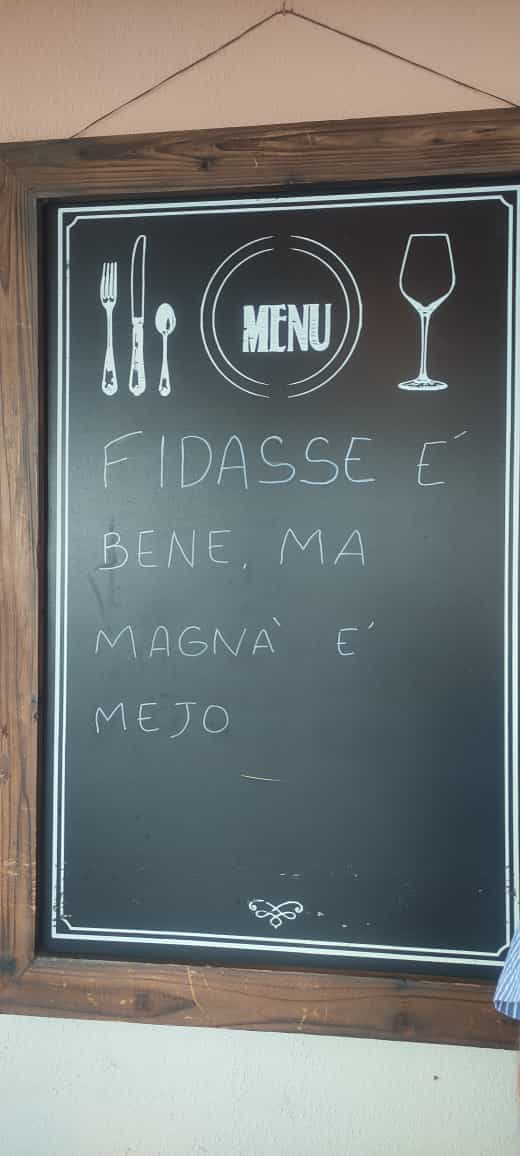 MENU
FIDASSE E´
BENE, MA
MAGNA` E´
MEJO